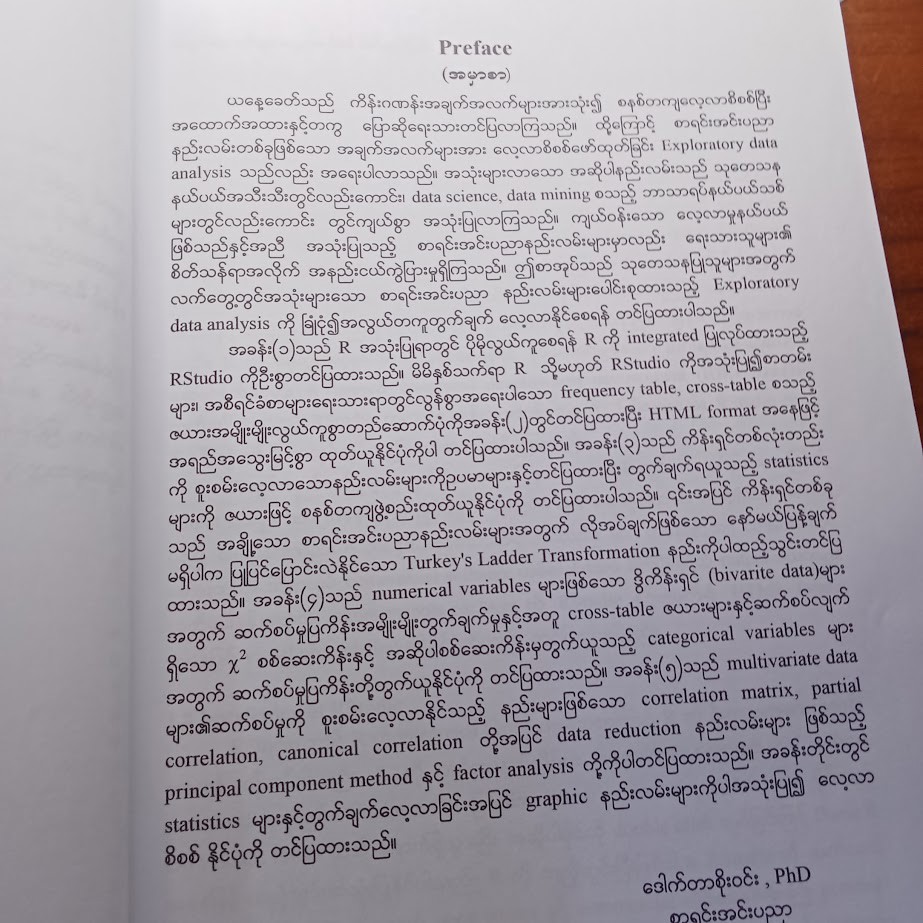 Preface
(အမှာစာ)
ယနေ့ခေတ်သည် ကိန်းဂဏန်းအချက်အလက်များအားသုံး၍ စနစ်တကျလေ့လာစိစစ်ပြီး
အထောက်အထားနှင့်တကွ ပြောဆိုရေးသားတင်ပြလာကြသည်။ ထို့ကြောင့် စာရင်းအင်းပညာ
နည်းလမ်းတစ်ခုဖြစ်သော အချက်အလက်များအား လေ့လာစိစစ်ဖော်ထုတ်ခြင်း Exploratory data
analysis သည်လည်း အရေးပါလာသည်။ အသုံးများလာသော အဆိုပါနည်းလမ်းသည် သုတေသန
နယ်ပယ်အသီးသီးတွင်လည်းကောင်း၊ data science, data mining စသည့် ဘာသာရပ်နယ်ပယ်သစ်
များတွင်လည်းကောင်း တွင်ကျယ်စွာ အသုံးပြုလာကြသည်။ ကျယ်ဝန်းသော လေ့လာမှုနယ်ပယ်
ဖြစ်သည်နှင့်အညီ အသုံးပြုသည့် စာရင်းအင်းပညာနည်းလမ်းများမှာလည်း ရေးသားသူများ၏
စိတ်သန်ရာအလိုက် အနည်းငယ်ကွဲပြားမှုရှိကြသည်။ ဤစာအုပ်သည် သုတေသနပြုသူများအတွက်
လက်တွေ့တွင်အသုံးများသော စာရင်းအင်းပညာ နည်းလမ်းများပေါင်းစုထားသည့် Exploratory
data analysis ကို ခြုံငုံ၍အလွယ်တကူတွက်ချက် လေ့လာနိုင်စေရန် တင်ပြထားပါသည်။
အခန်း(၁)သည် R အသုံးပြုရာတွင် ပိုမိုလွယ်ကူစေရန် R ကို integrated ပြုလုပ်ထားသည့်
RStudio ကိုဦးစွာတင်ပြထားသည်။ မိမိနှစ်သက်ရာ R သို့မဟုတ် RStudio ကိုအသုံးပြု၍စာတမ်း
များ၊ အစီရင်ခံစာများရေးသားရာတွင်လွန်စွာအရေးပါသော frequency table, cross-table စသည့်
ဇယားအမျိုးမျိုးလွယ်ကူစွာတည်ဆောက်ပုံကိုအခန်း(၂)တွင်တင်ပြထားပြီး HTML format အနေဖြင့်
အရည်အသွေးမြင့်စွာ ထုတ်ယူနိုင်ပုံကိုပါ တင်ပြထားပါသည်။ အခန်း(၃)သည် ကိန်းရှင်တစ်လုံးတည်း
ကို စူးစမ်းလေ့လာသောနည်းလမ်းများကိုဥပမာများနှင့်တင်ပြထားပြီး တွက်ချက်ရယူသည့် statistics
များကို ဇယားဖြင့် စနစ်တကျဖွဲ့စည်းထုတ်ယူနိုင်ပုံကို တင်ပြထားပါသည်။ ၎င်းအပြင် ကိန်းရှင်တစ်ခု
သည် အချို့သော စာရင်းအင်းပညာနည်းလမ်းများအတွက် လိုအပ်ချက်ဖြစ်သော နော်မယ်ပြန့်ချက်
မရှိပါက ပြုပြင်ပြောင်းလဲနိုင်သော Turkey's Ladder Transformation နည်းကိုပါထည့်သွင်းတင်ပြ
ထားသည်။ အခန်း(၄)သည် numerical variables များဖြစ်သော ဒွိကိန်းရှင် (bivarite data)များ
အတွက် ဆက်စပ်မှုပြကိန်းအမျိုးမျိုးတွက်ချက်မှုနှင့်အတူ cross-table ဇယားများနှင့်ဆက်စပ်လျက်
ရှိသော χ² စစ်ဆေးကိန်းနှင့် အဆိုပါစစ်ဆေးကိန်းမှတွက်ယူသည့် categorical variables များ
အတွက် ဆက်စပ်မှုပြကိန်းတို့တွက်ယူနိုင်ပုံကို တင်ပြထားသည်။ အခန်း(၅)သည် multivariate data
များ၏ဆက်စပ်မှုကို စူးစမ်းလေ့လာနိုင်သည့် နည်းများဖြစ်သော correlation matrix, partial
correlation, canonical correlation တို့အပြင် data reduction နည်းလမ်းများ ဖြစ်သည့်
principal component method နှင့် factor analysis ကို့ကိုပါတင်ပြထားသည်။ အခန်းတိုင်းတွင်
statistics များနှင့်တွက်ချက်လေ့လာခြင်းအပြင် graphic နည်းလမ်းများကိုပါအသုံးပြု၍ လေ့လာ
စိစစ် နိုင်ပုံကို တင်ပြထားသည်။
ဒေါက်တာစိုးဝင်း , PhD
စာရင်းအင်းပညာ